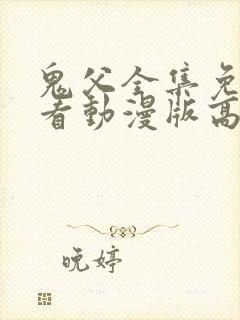 鬼父全集免
看動漫版高
晚婷